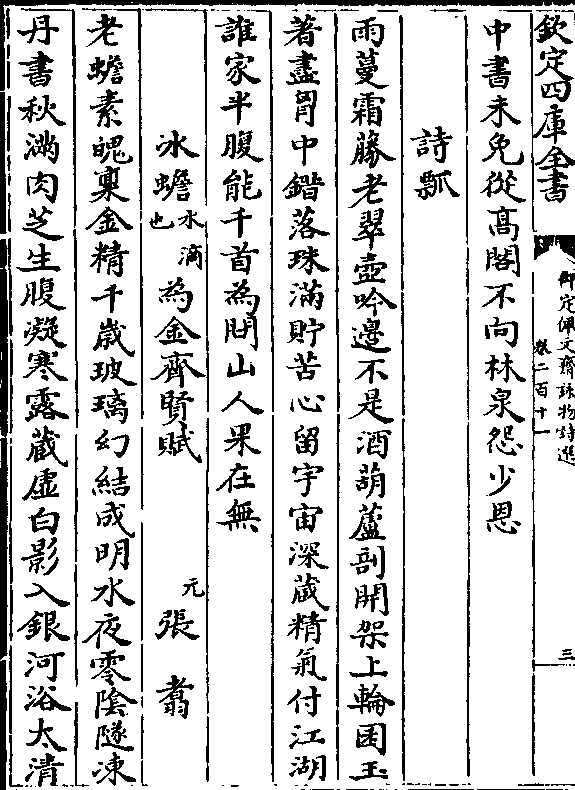 欽定四庫全書
御定佩文齋詠物詩選
卷二百十一
三
中書未免從高閣不向林泉怨少恩
詩瓢
雨蔓霜藤老翠壺吟邊不是酒葫蘆剖開架上輪囷玉
著盡胷中錯落珠滿貯苦心留宇宙深蔵精氣付江湖
誰家半腹能千首為問山人果在無
冰蟾水滴也為金齊賢賦 元張翥
老蟾素魄稟金精千歲玻璃幻結成明水夜零陰隧凍
丹書秋滿肉芝生腹凝寒露蔵虛白影入銀河浴太清